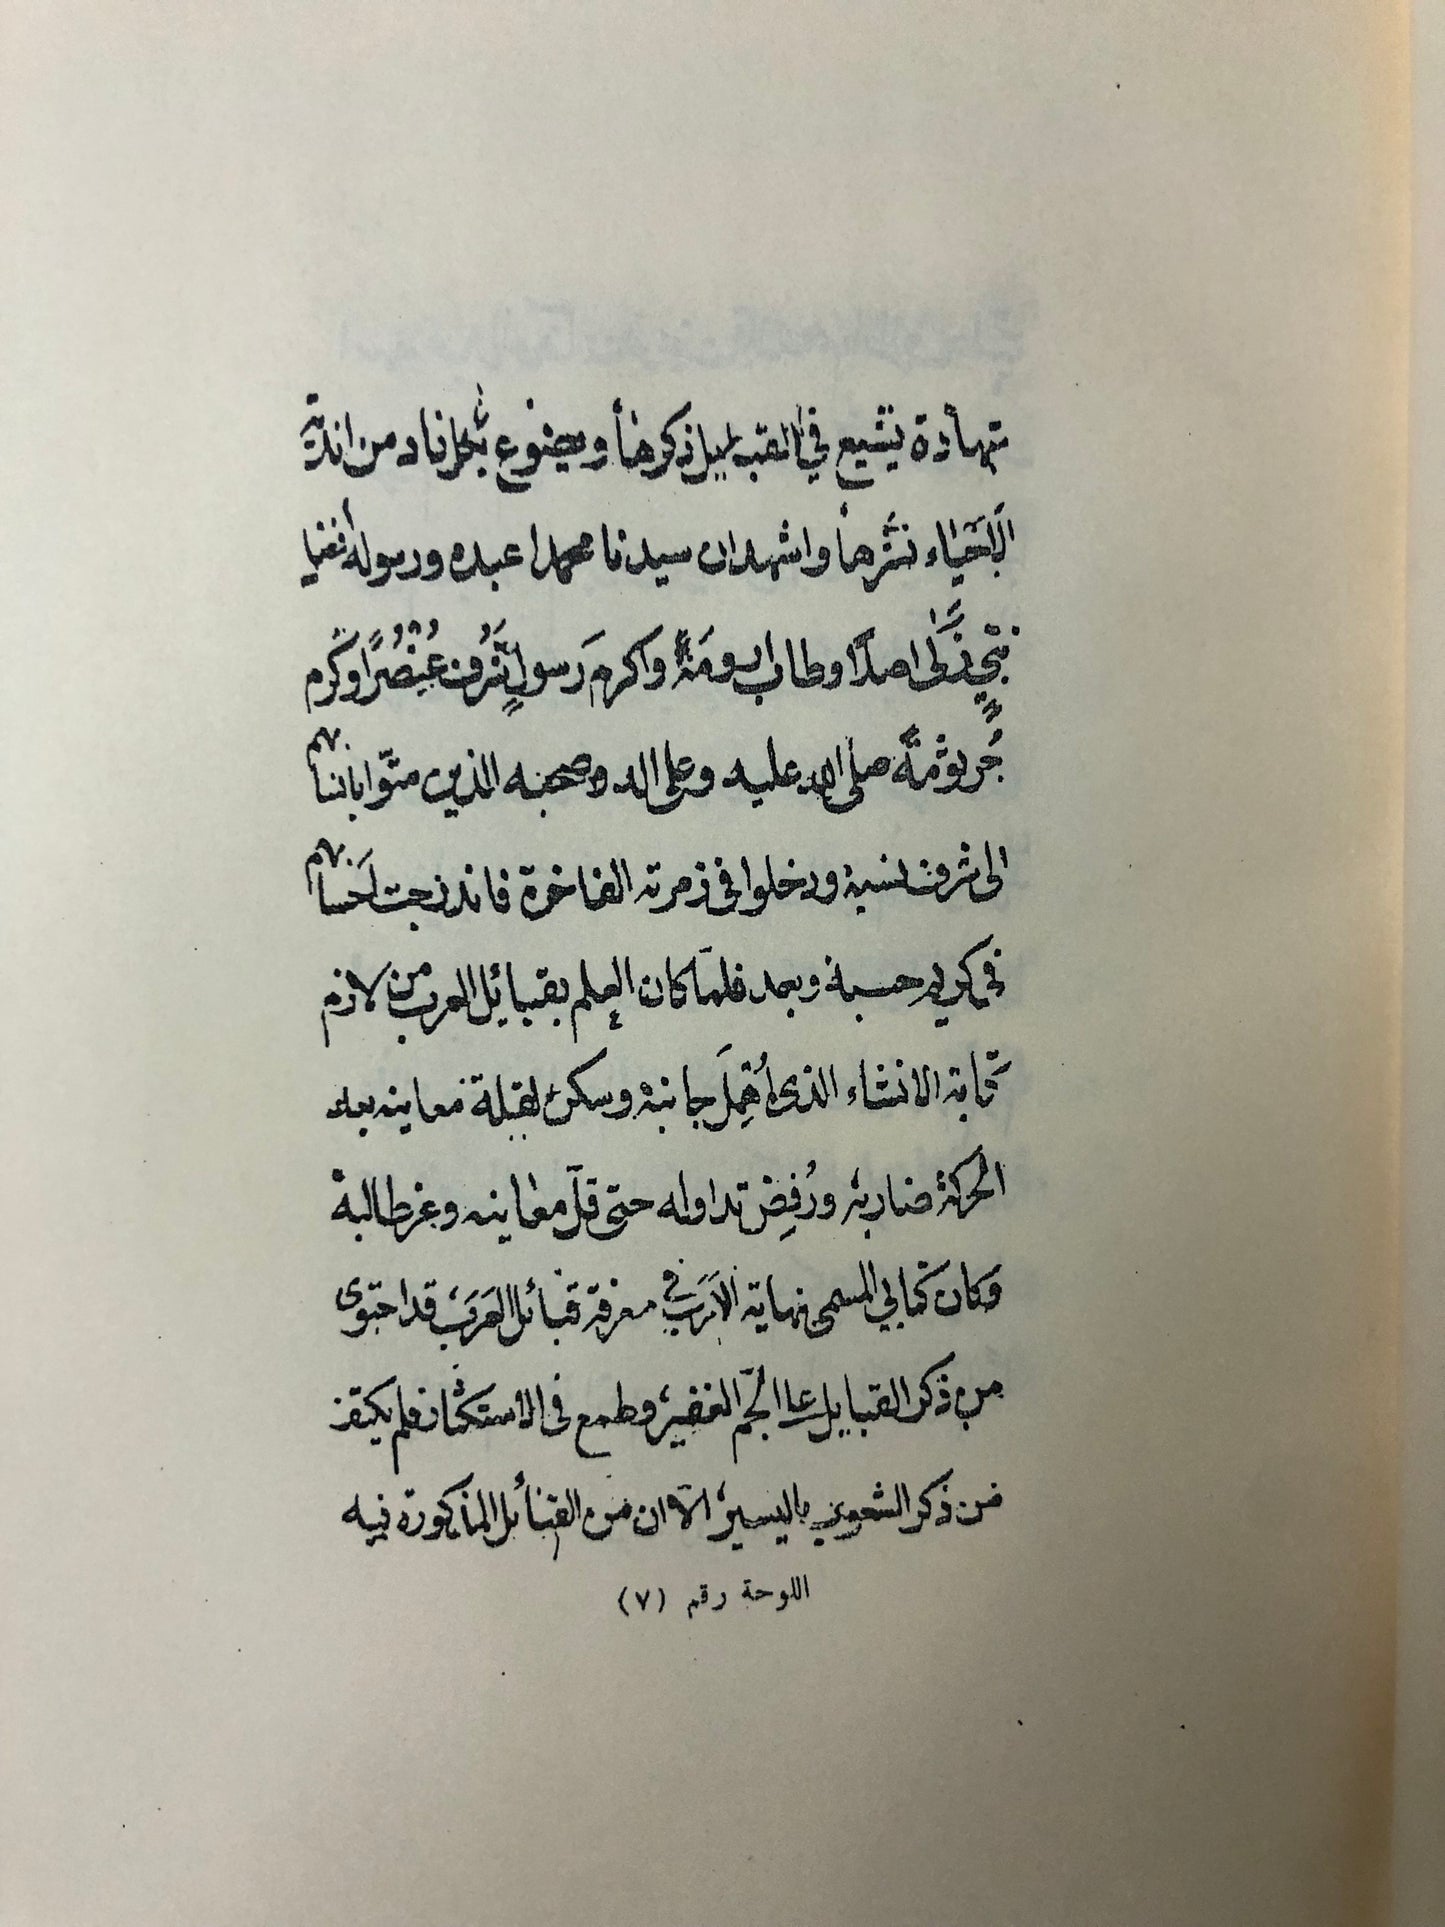 شهادة يشيع في القبايل ذكرها ويضوع بكل ناد من اندية
الاحياء نشرها واشهد ان سيدنا محمدا عبده ورسوله
نبي زكى اصلا وطاب ارومة واكرم رسول شرف عنصرا وكرم
جرثومة صلى الله عليه وعلى اله وصحبه الذين متوا بانسابهم
الى شرف نسبه ودخلوا في زمرته الفاخرة فاندرجت احسابهم
في كريم حسبه وبعد فلما كان العلم بقبائل العرب من لازم
كتابة الانشاء الذي اهمل جانبه وسكن لقلة معاينه بعد
الحركة ضاربه ورفض تداوله حتى قل معاينه وعز طالبه
وكان كتابي المسمى نهاية الارب في معرفة قبائل العرب قد احتوى
من ذكر القبايل على الجم الغفير وطمع في الاستكثار فلم يكتف
من ذكر الشعوب باليسير الا ان من القبائل المذكورة فيه
اللوحة رقم (٧)